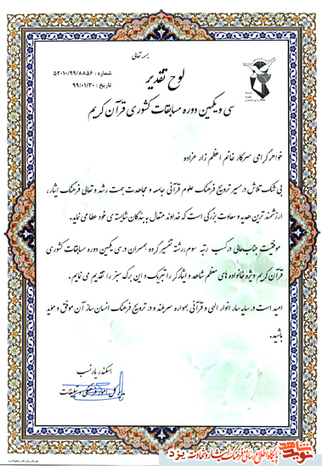 بسمه تعالی
شماره : ۵۲۰۱۰/۹۹/۸۸۵۶
تاریخ : ۹۹/۰۱/۳۰
لوح تقدیر
سی و یکمین دوره مسابقات کشوری قرآن کریم
خواهر گرامی سرکار خانم اعظم زارعزاده
بی شک تلاش در مسیر ترویج فرهنگ علوم قرآنی جامعه و مجاهدت جهت رشد و تعالی فرهنگ ایثار،
ارزشمندترین هدیه و سعادت بزرگی است که خداوند متعال به بندگان شایسته ی خود عطا می نماید.
موفقیت جنابعالی در کسب رتبه سوم رشته تفسیر گروه همسران در سی و یکمین دوره مسابقات کشوری
قرآن کریم ویژه خانواده های معظم شاهد و ایثارگر را تبریک و این برگ سبز را تقدیم می نمایم.
امید است در سایه سار انوار الهی و قرآنی همواره سربلند و در ترویج فرهنگ انسان ساز آن موفق و موید
باشید.
اسکندر یارنسب
مدیرکل امور فرهنگی و تبلیغات
نوید شاهد
پایگاه اطلاع رسانی فرهنگ ایثار و شهادت یزد